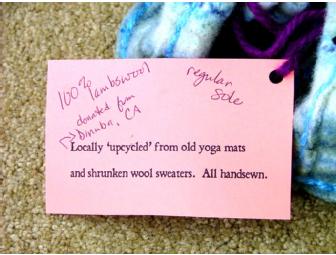 100%
lambswool
donated from
Dinuba, CA
regular
sole
Locally 'upcycled' from old yoga mats
and shrunken wool sweaters. All handsewn.